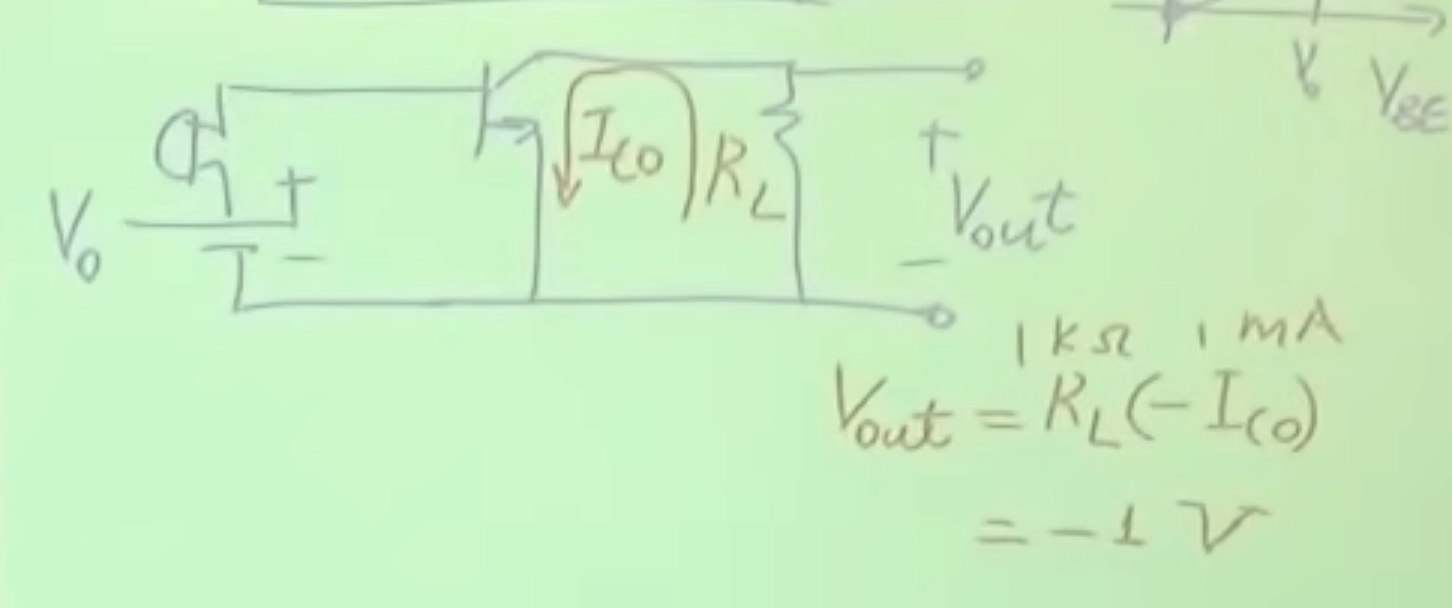 V₀ V_BE
I_C0 R_L
+
V₀ + −
V_out
−
1 kΩ 1 mA
V_out = R_L(−I_C0)
= −1 V